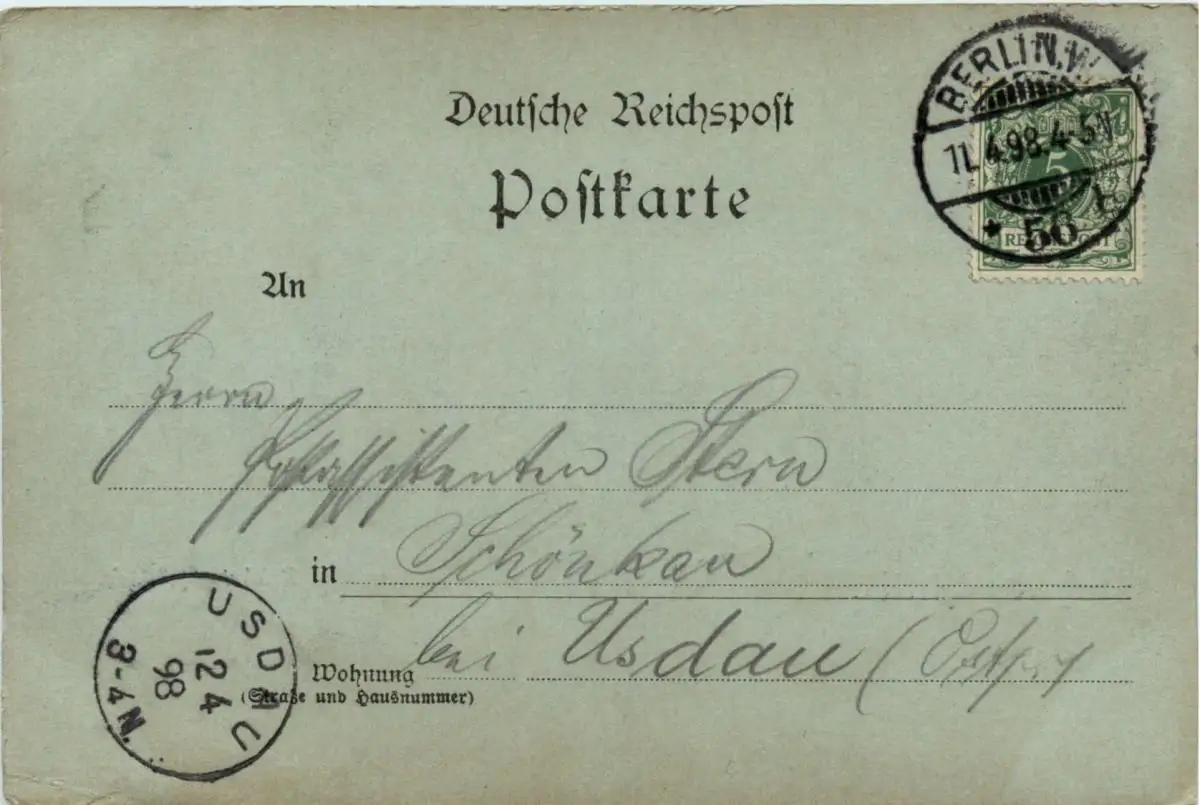 Deutsche Reichspost
Postkarte
BERLIN, W.
11.4.98.4-5N
* 56
5
REICHSPOST
An
Herrn
Postassistenten Stern
in Schönkau
bei Usdau (Ostpr.)
Wohnung
(Straße und Hausnummer)
USDAU
12 4
98
3-4N.